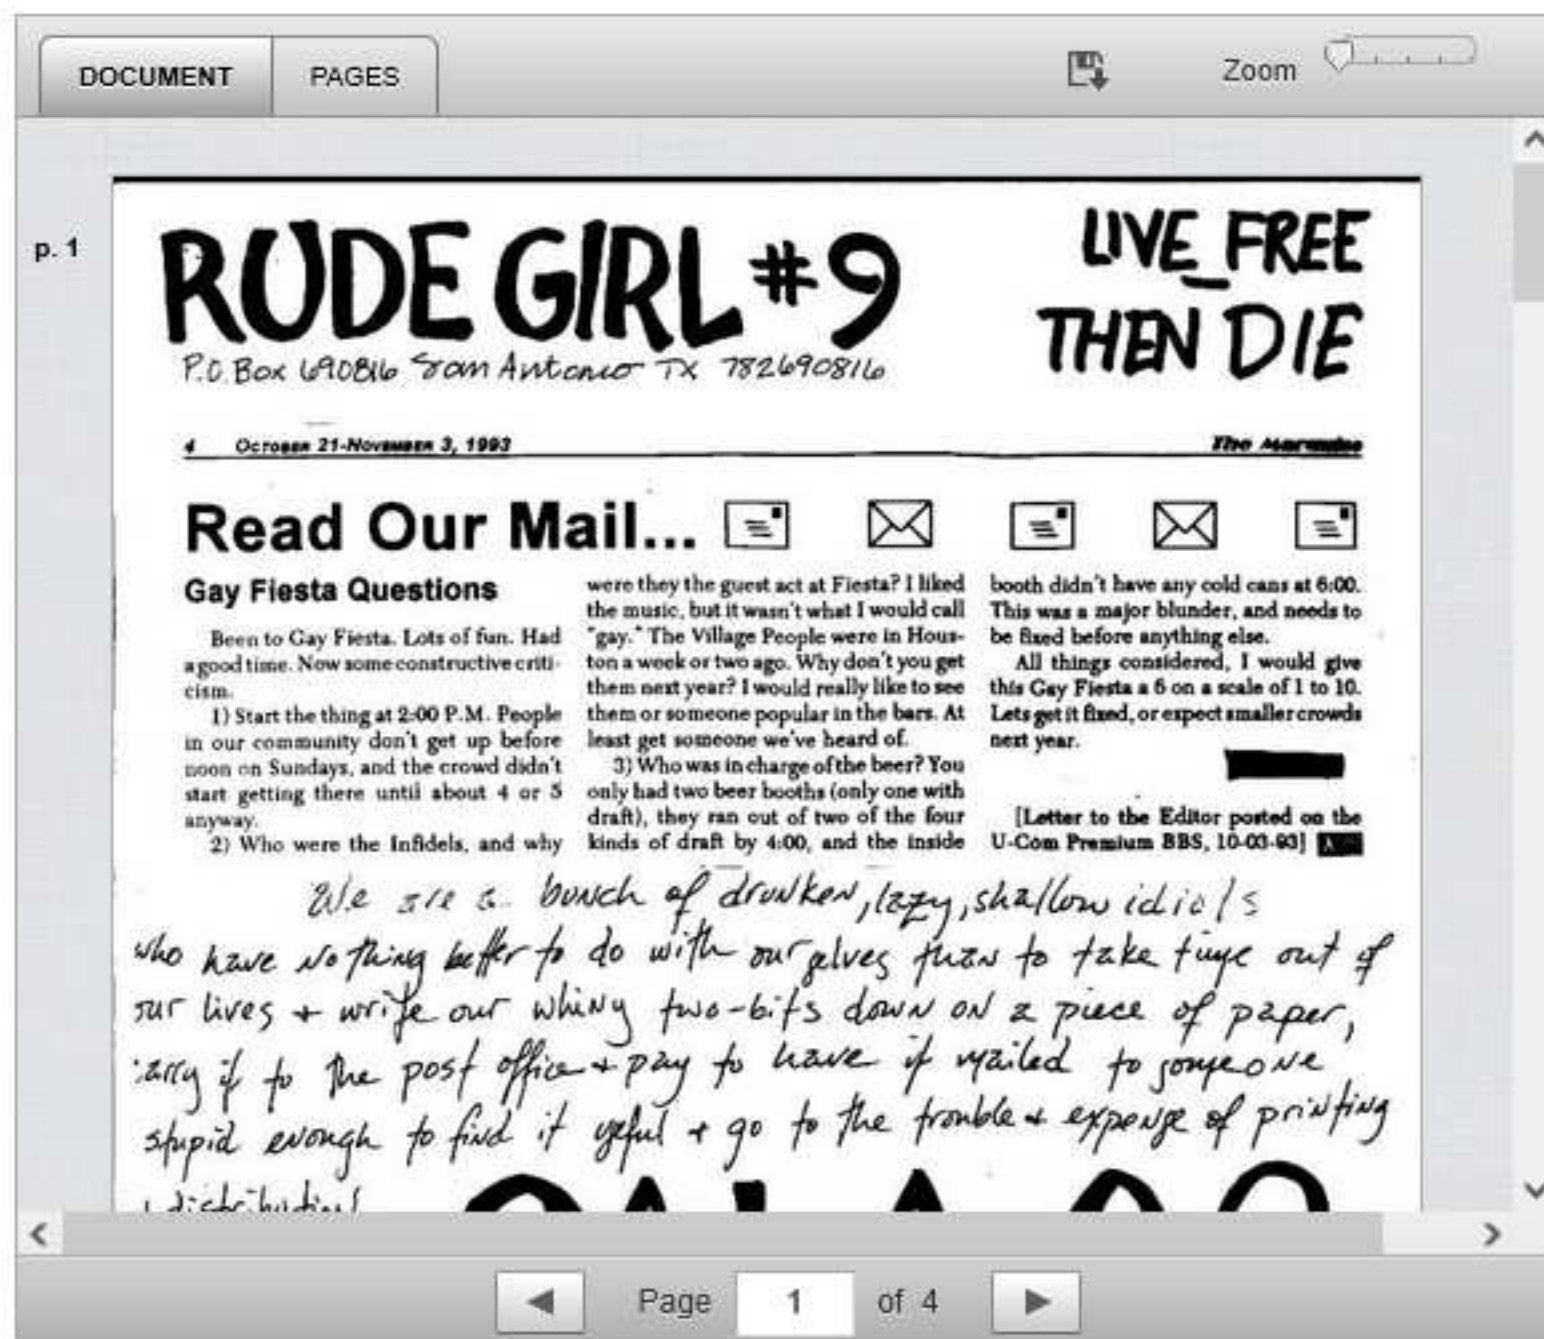 DOCUMENT
PAGES
Zoom
p. 1
RUDE GIRL #9
LIVE FREE
THEN DIE
P.O. Box 690816 San Antonio TX 782690816
4 October 21-November 3, 1993
The Marquise
Read Our Mail...
Gay Fiesta Questions
Been to Gay Fiesta. Lots of fun. Had
a good time. Now some constructive criti-
cism.
1) Start the thing at 2:00 P.M. People
in our community don't get up before
noon on Sundays, and the crowd didn't
start getting there until about 4 or 5
anyway.
2) Who were the Infidels, and why
were they the guest act at Fiesta? I liked
the music, but it wasn't what I would call
"gay." The Village People were in Hous-
ton a week or two ago. Why don't you get
them next year? I would really like to see
them or someone popular in the bars. At
least get someone we've heard of.
3) Who was in charge of the beer? You
only had two beer booths (only one with
draft), they ran out of two of the four
kinds of draft by 4:00, and the inside
booth didn't have any cold cans at 6:00.
This was a major blunder, and needs to
be fixed before anything else.
All things considered, I would give
this Gay Fiesta a 6 on a scale of 1 to 10.
Lets get it fixed, or expect smaller crowds
next year.
[Letter to the Editor posted on the
U-Com Premium BBS, 10-03-93]
We are a bunch of drunken, lazy, shallow idiots
who have nothing better to do with ourselves than to take time out of
our lives + write our whiny two-bits down on a piece of paper,
carry it to the post office + pay to have it mailed to someone
stupid enough to find it useful + go to the trouble + expense of printing
distribution!
Page 1 of 4